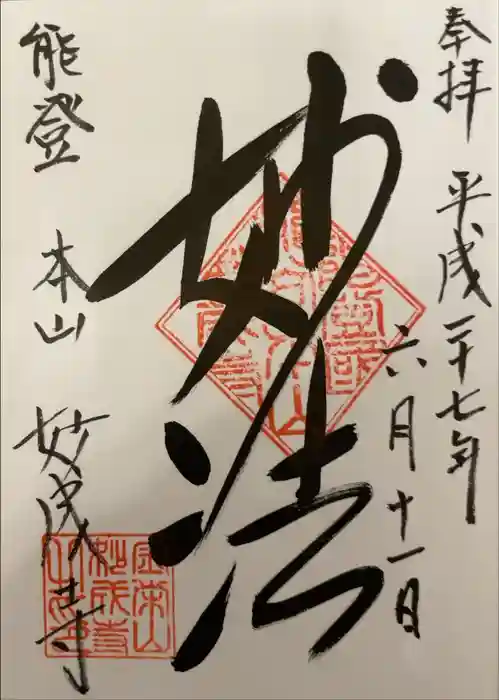 奉拝 平成二十七年
六月十一日
妙法
能登 本山 妙成寺
金榮山
妙成寺